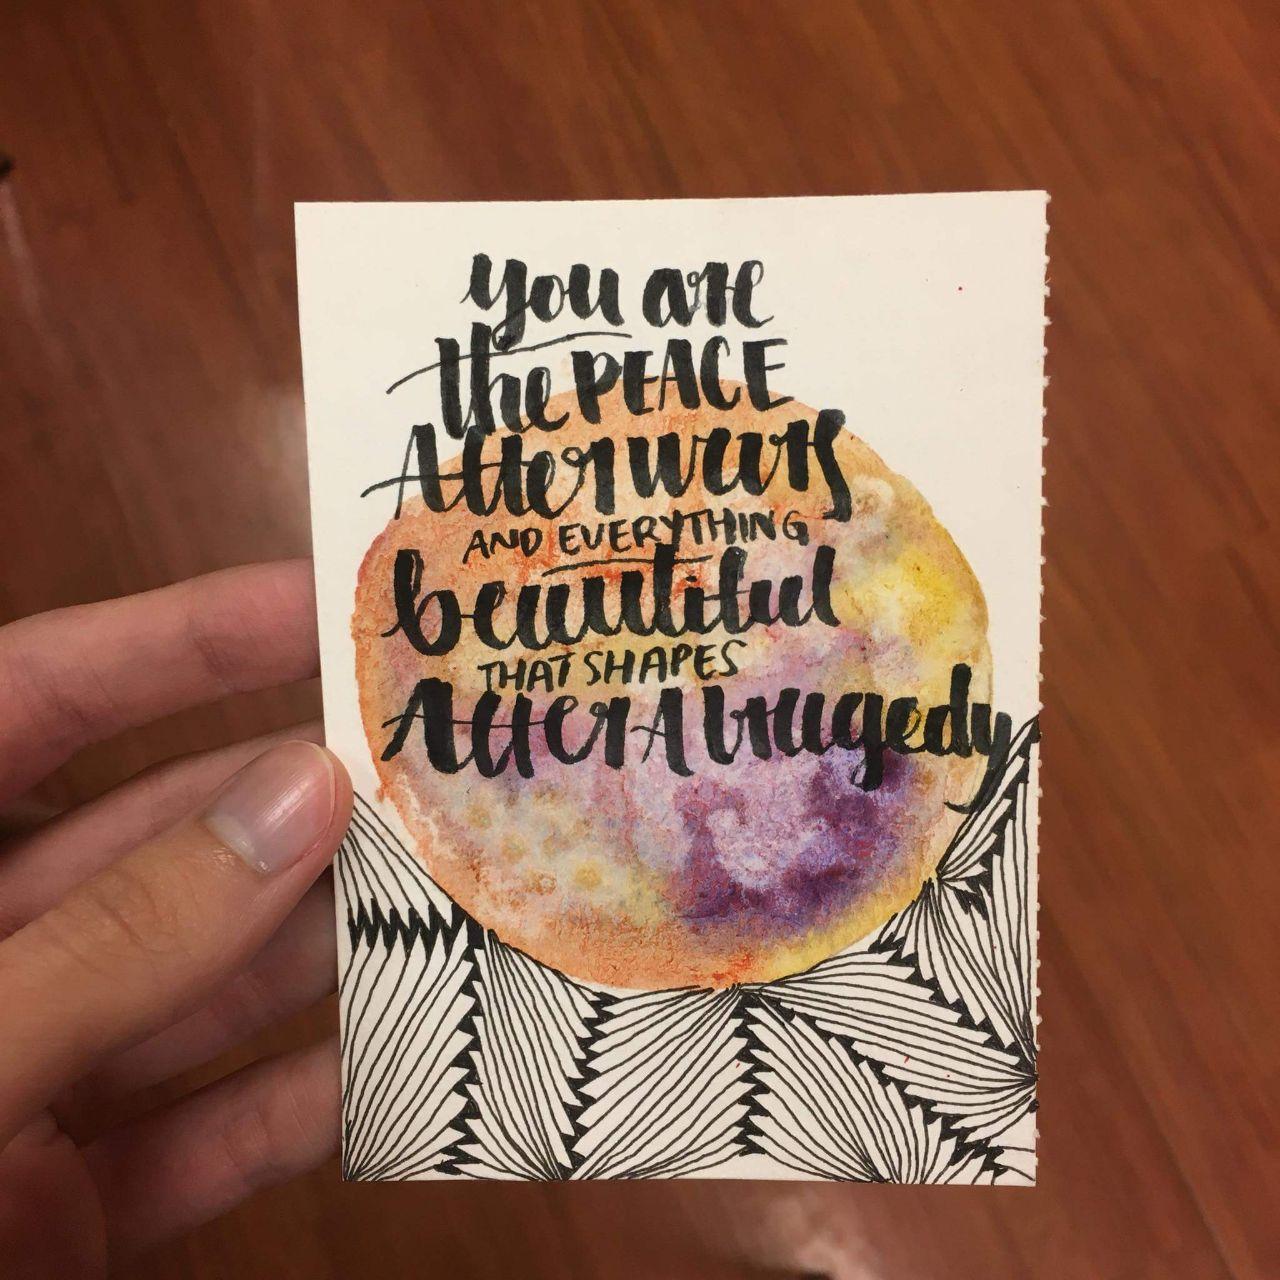 you are
the PEACE
After wars
AND EVERYTHING
beautiful
THAT SHAPES
After A tragedy